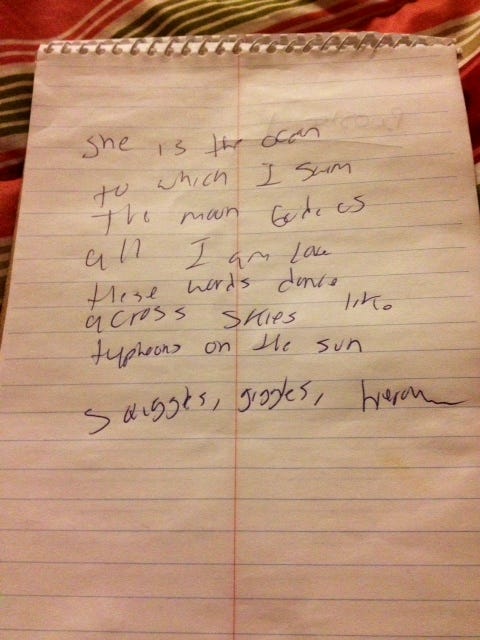 she is the ocean
to which I swim
the moon guides us
all I am love
these words dance
across skies like
typhoons on the sun
squiggles, giggles,